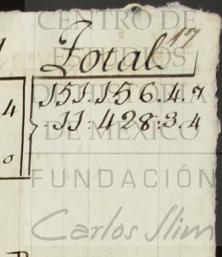 17
Total
4 151.156.4.7
11.428.3.4
0
CENTRO DE
ESTUDIOS
DE HISTORIA
DE MÉXICO
FUNDACIÓN
Carlos Slim